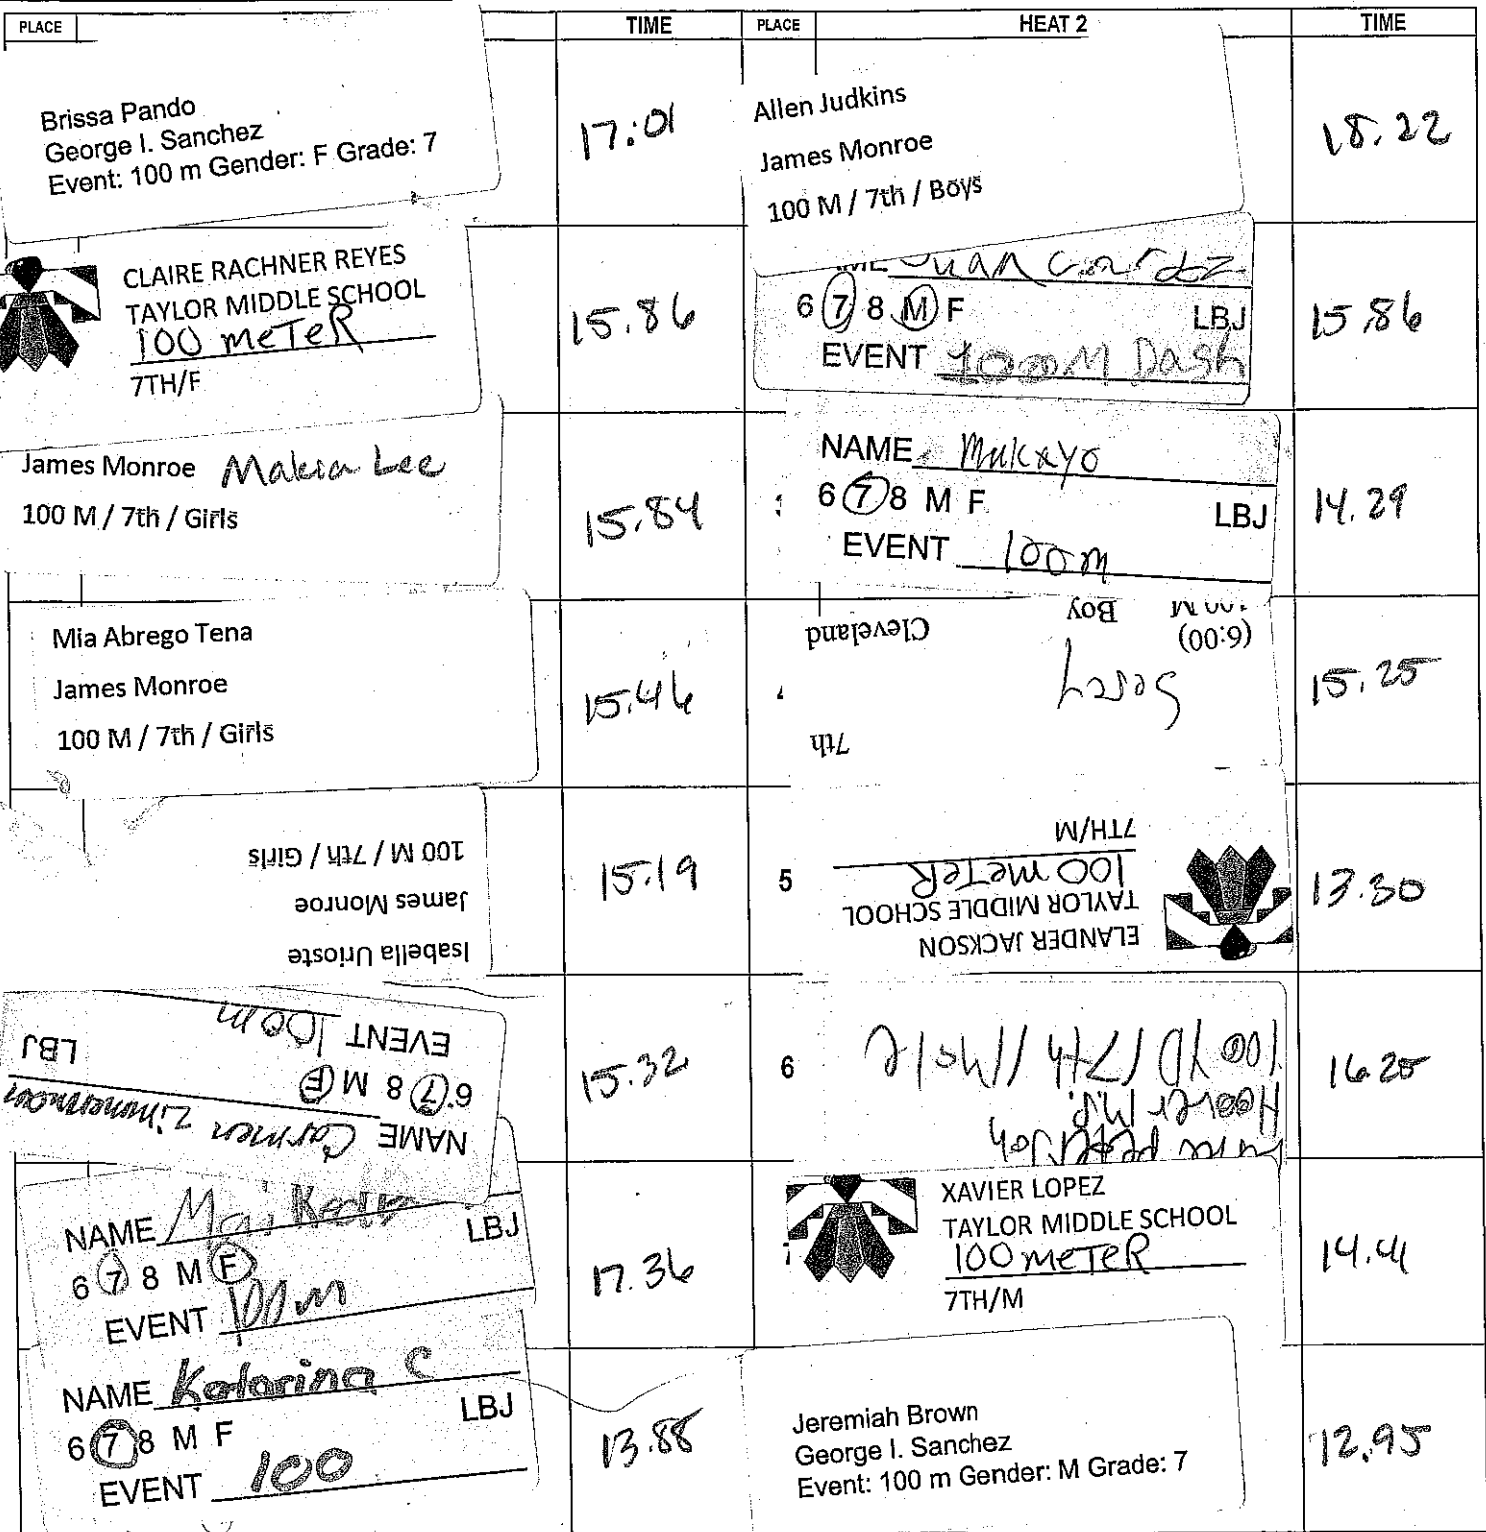 PLACE TIME PLACE HEAT 2 TIME
Brissa Pando
George I. Sanchez
Event: 100 m Gender: F Grade: 7
17:01
CLAIRE RACHNER REYES
TAYLOR MIDDLE SCHOOL
100 meTeR
7TH/F
15.86
James Monroe Makia Lee
100 M / 7th / Girls
15.84
Mia Abrego Tena
James Monroe
100 M / 7th / Girls
15.46
Isabella Urioste
James Monroe
100 M / 7th / Girls
15.19
NAME Carmen Zimmerman
6 7 8 M F
LBJ
EVENT 100m
15.32
NAME
LBJ
6 7 8 M F
EVENT 100m
17.36
NAME Katarina C
LBJ
6 7 8 M F
EVENT 100
13.88
Allen Judkins
James Monroe
100 M / 7th / Boys
18.22
Juan
6 7 8 M F
LBJ
EVENT 100M Dash
15.86
NAME Mukayo
6 7 8 M F
LBJ
EVENT 100m
14.29
7th
Cleveland
Boy
100 M
(6:00)
15.25
5
ELANDER JACKSON
TAYLOR MIDDLE SCHOOL
100 meTeR
7TH/M
13.30
6
Hoover M.S.
100 YD / 7th / Male
16.25
XAVIER LOPEZ
TAYLOR MIDDLE SCHOOL
100 meTeR
7TH/M
14.41
Jeremiah Brown
George I. Sanchez
Event: 100 m Gender: M Grade: 7
12.95